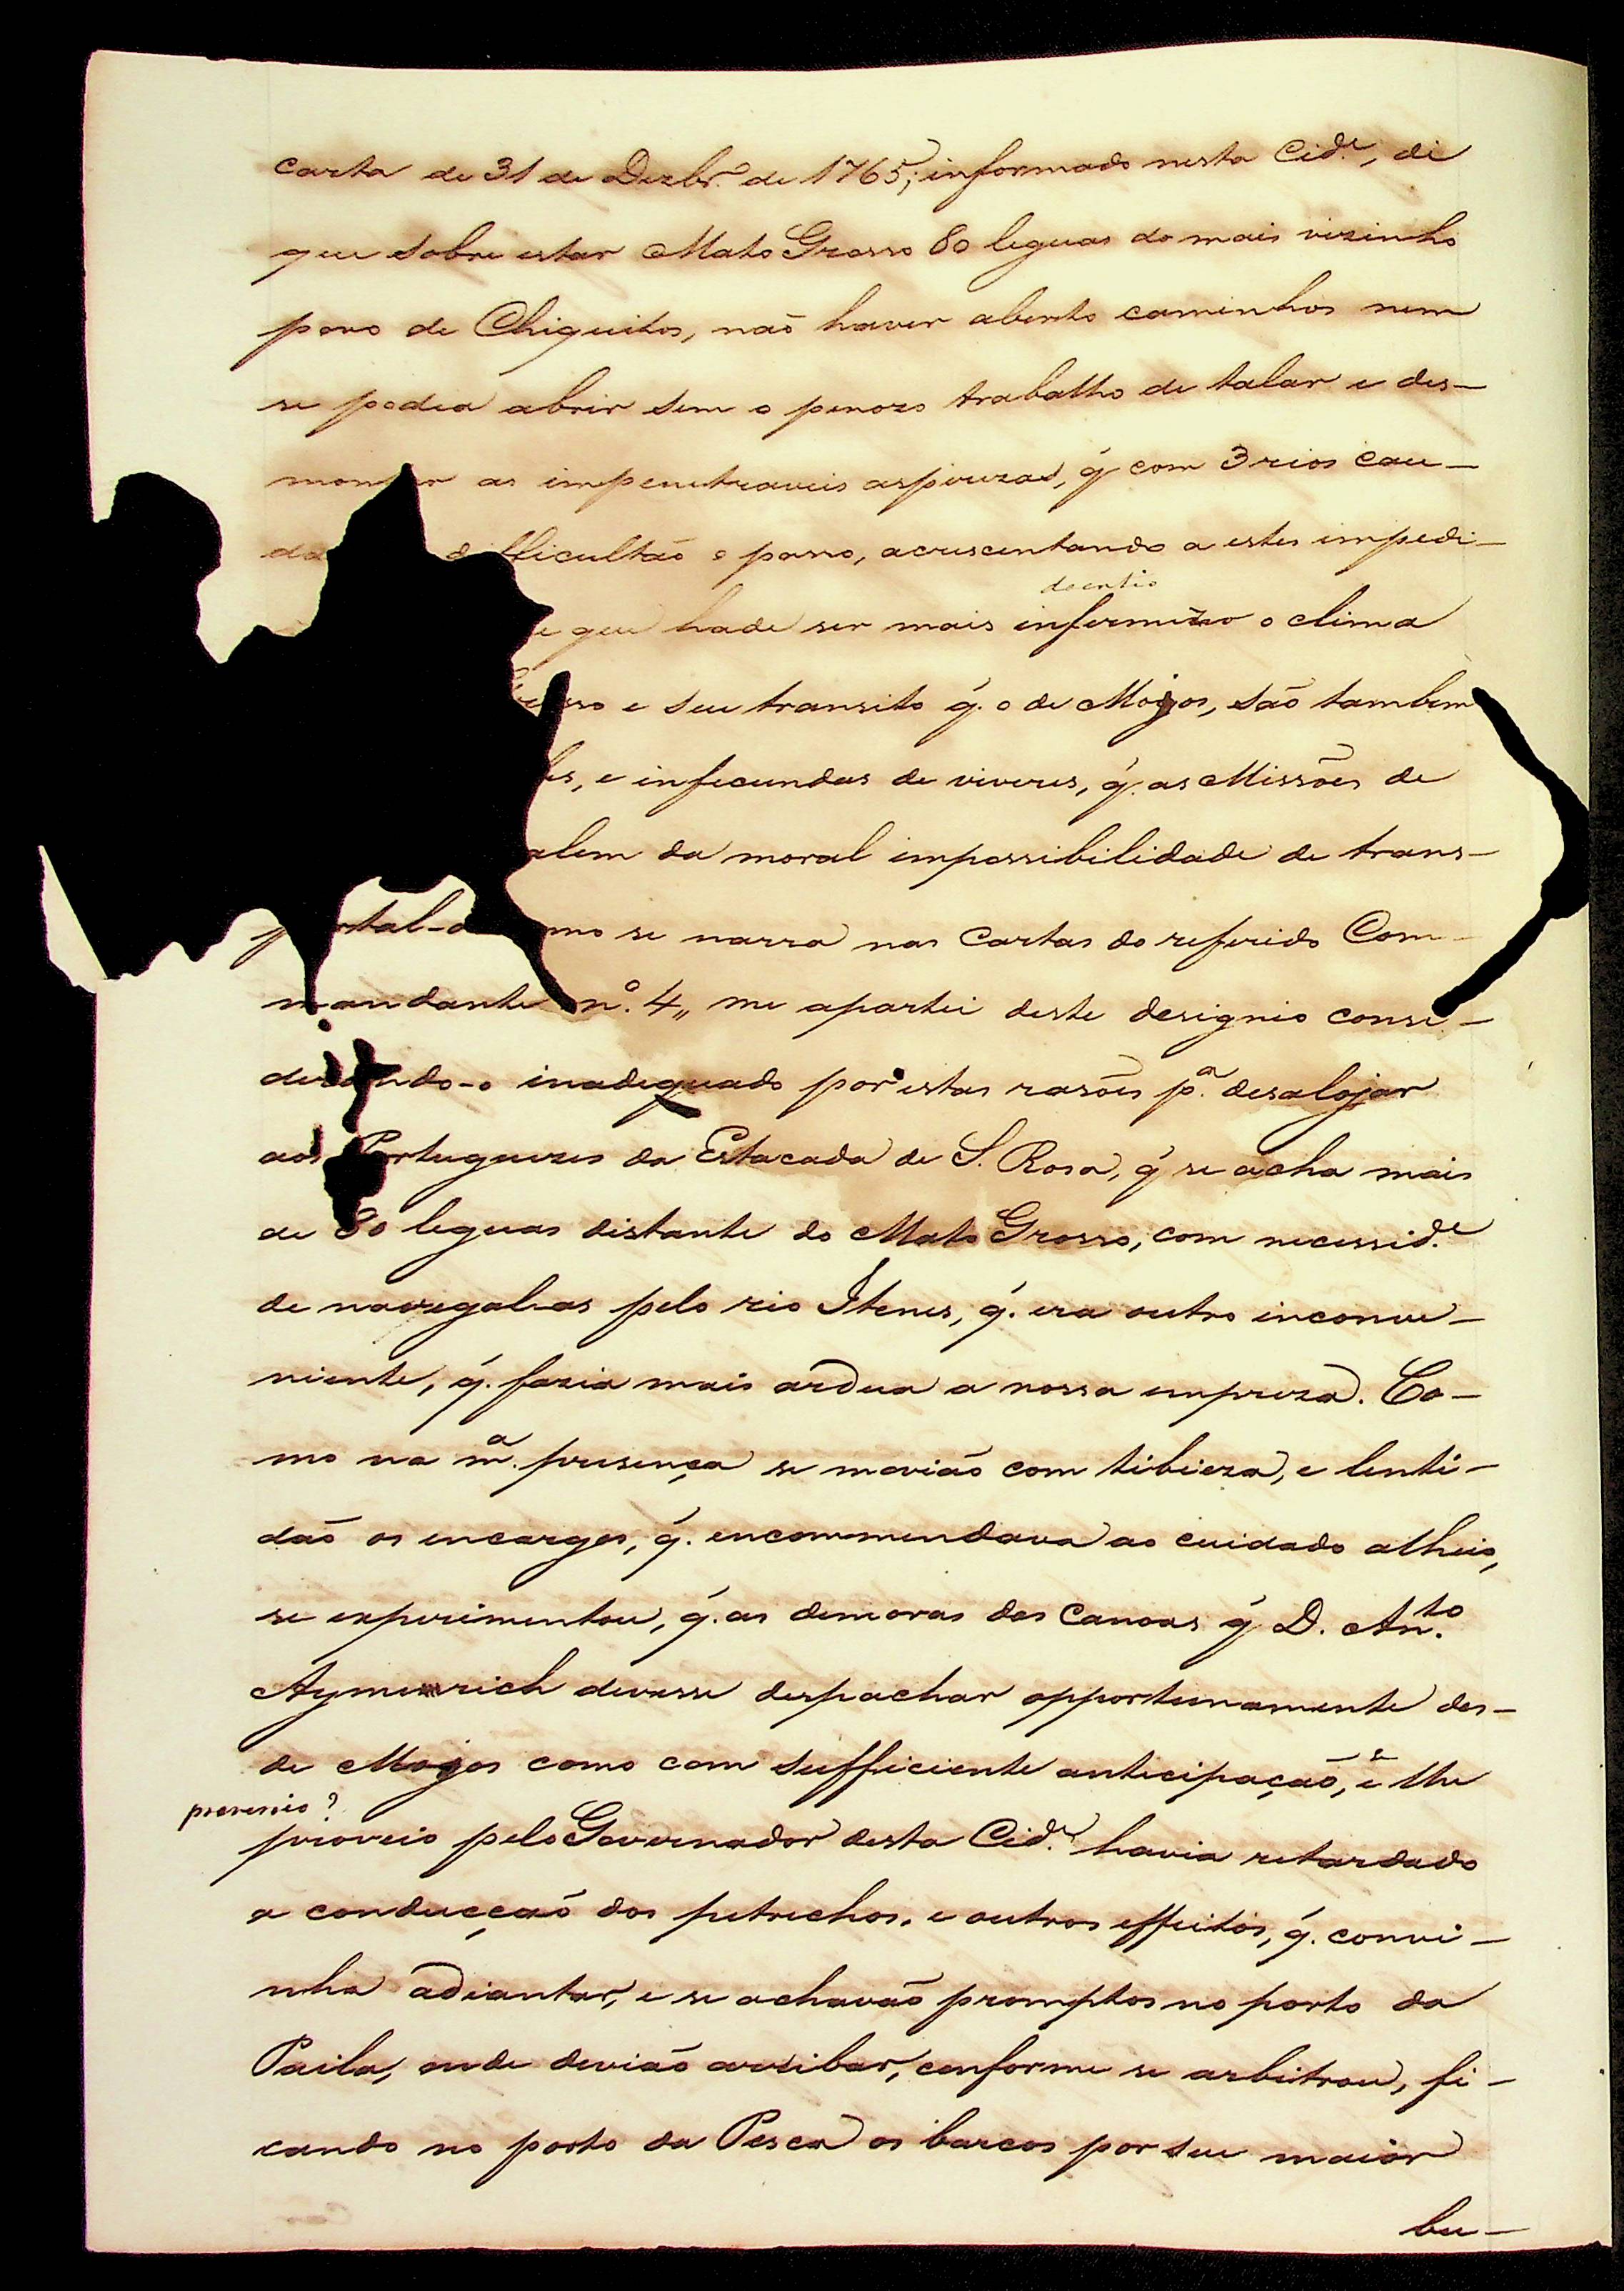 carta de 31 de Dezbr.º de 1765; informado nesta Cid.e, di
que sobre estar Mato Grosso 80 leguas do mais vizinho
povo de Chiquitos, naõ haver aberto caminhos nem
se podia abrir sem o penozo trabalho de talar e des-
montar as impenetraveis asperezas, q́ com 3 rios cau-
da difficultaõ o passo, acrescentando a estes impedi-
doentio
e que hade ser mais infermizo o clima
sso e seu transito q́. o de Mojos, saõ tambem
es, e infecundas de viveres, q́. as Missões de
alem da moral impossibilidade de trans-
portal-o mo se narra nas Cartas do referido Com-
mandante nº. 4,, me apartei deste designio consi-
derando-o inadequado por estas rasões pª. desalojar
aos Portuguezes da Estacada de S. Rosa, q́ se acha mais
de 80 leguas distante do Mato Grosso, com necessid.e
de navegal-as pelo rio Itenes, q́. era outro inconve-
niente, q́. fazia mais ardua a nossa empreza. Co-
mo na mª. presença se moviaõ com tibieza, e lenti-
daõ os encargos, q́. encommendava ao cuidado alheio,
se experimentou, q́. as demoras das Canoas q́ D. An.to
Aymerich devesse despachar opportunamente des-
de Mojos como com sufficiente antecipaçaõ, se lhe
provenio?
proveio pelo Governador desta Cid.e havia retardado
a conducçaõ dos petrechos, e outros effeitos, q́. convi-
nha adiantar, e se achavaõ promptos no porto da
Paila, onde deviaõ arribar, conforme se arbitrou, fi-
cando no porto da Pesca os barcos por seu maior
bu-